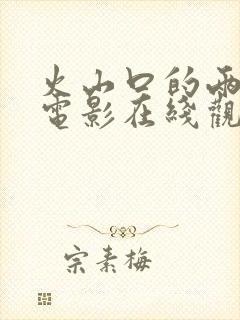 火山口的兩
電影在綫觀
宗素梅